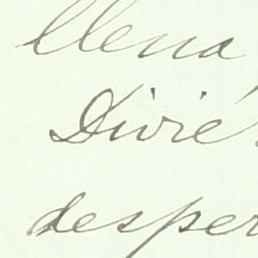 llena
Divié
desper